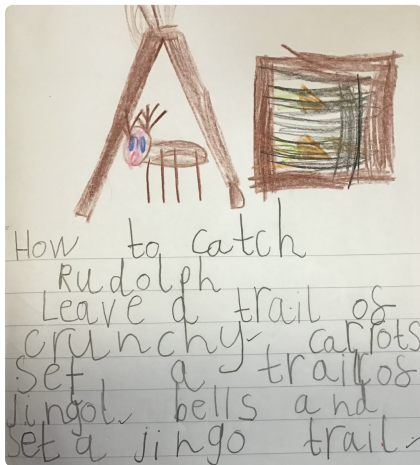 How to catch
Rudolph
Leave a trail of
crunchy carrots
Set a trail of
jingol bells and
set a jingo trail